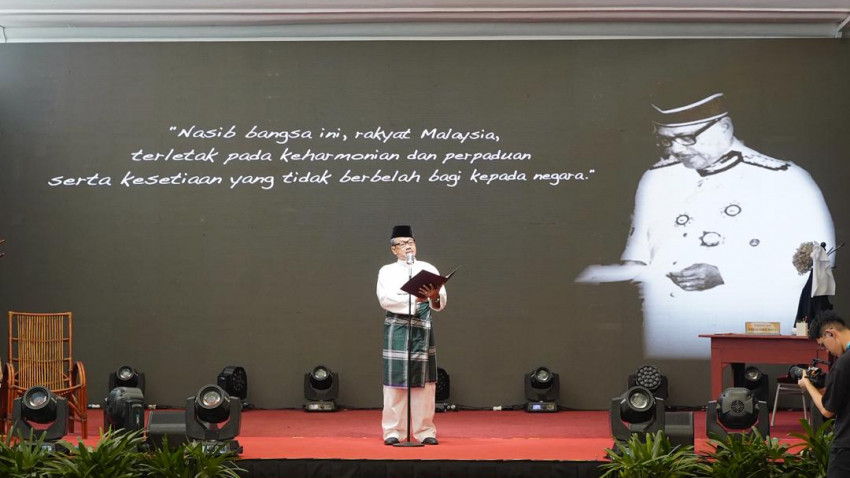 "Nasib bangsa ini, rakyat Malaysia,
terletak pada keharmonian dan perpaduan
serta kesetiaan yang tidak berbelah bagi kepada negara."